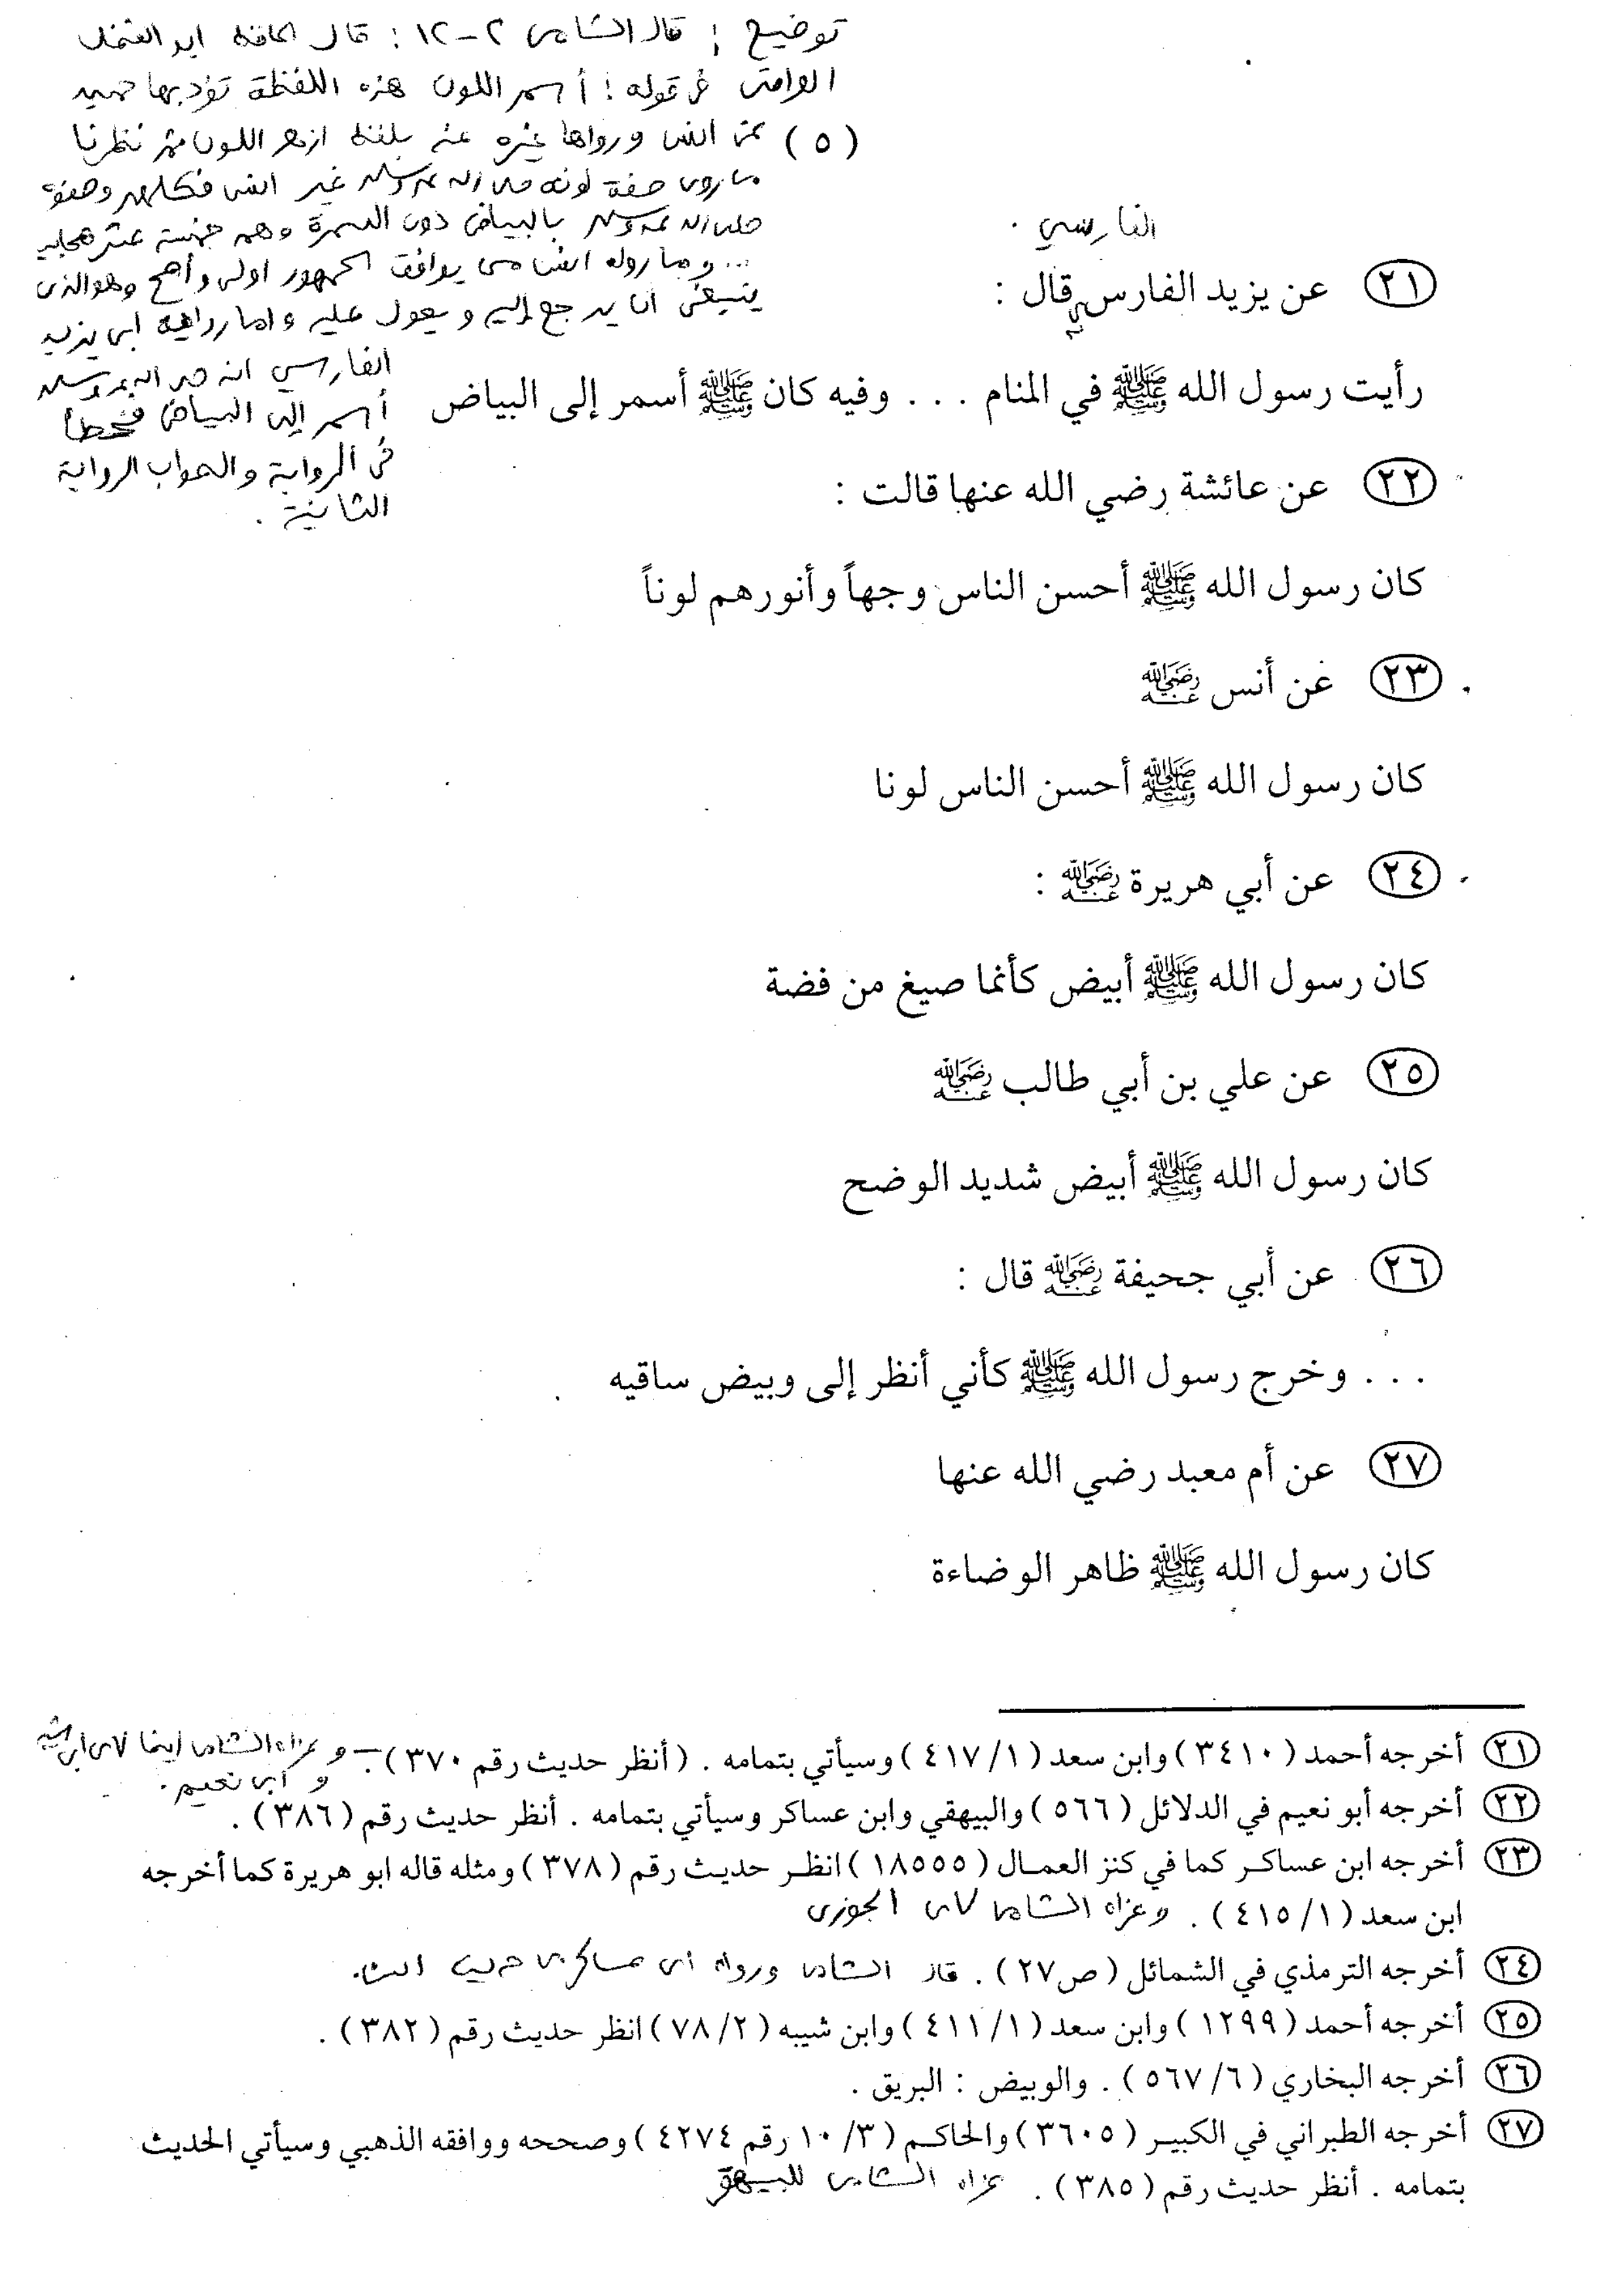 توضيح : قال الشامي ٢-١٢ : قال الحافظ ابو الفضل
العراقي في قوله : أسمر اللون هذه اللفظة تفرد بها حميد
(٥) عن انس ورواها غيره عنه بلفظ ازهر اللون ثم نظرنا
من روى صفة لونه صلى الله عليه وسلم غير انس فكلهم وصفوه
صلى الله عليه وسلم بالبياض دون السمرة وهم خمسة عشر صحابيا
... وما رواه يوافق الجمهور اولى وأصح وهو الذي
ينبغي ان يرجع إليه ويعول عليه واما رواية ابي يزيد
الفارسي انه صلى الله عليه وسلم
أسمر إلى البياض فخطأ
في الرواية والصواب الرواية
الثانية .
الفارسي .
٢١ عن يزيد الفارسي قال :
رأيت رسول الله ﷺ في المنام . . . وفيه كان ﷺ أسمر إلى البياض
٢٢ عن عائشة رضي الله عنها قالت :
كان رسول الله ﷺ أحسن الناس وجهاً وأنورهم لوناً
٢٣ عن أنس رضي الله عنه
كان رسول الله ﷺ أحسن الناس لونا
٢٤ عن أبي هريرة رضي الله عنه :
كان رسول الله ﷺ أبيض كأنما صيغ من فضة
٢٥ عن علي بن أبي طالب رضي الله عنه
كان رسول الله ﷺ أبيض شديد الوضح
٢٦ عن أبي جحيفة رضي الله عنه قال :
. . . وخرج رسول الله ﷺ كأني أنظر إلى وبيض ساقيه
٢٧ عن أم معبد رضي الله عنها
كان رسول الله ﷺ ظاهر الوضاءة
٢١ أخرجه أحمد (٣٤١٠) وابن سعد (٤١٧/١) وسيأتي بتمامه . (أنظر حديث رقم ٣٧٠) . – وعزاه الشامي ايضا لابن ابي شيبه
و ابي نعيم .
٢٢ أخرجه أبو نعيم في الدلائل (٥٦٦) والبيهقي وابن عساكر وسيأتي بتمامه . أنظر حديث رقم (٣٨٦) .
٢٣ أخرجه ابن عساكر كما في كنز العمال (١٨٥٥٥) انظر حديث رقم (٣٧٨) ومثله قاله ابو هريرة كما أخرجه
ابن سعد (٤١٥/١) . وعزاه الشامي لابن الجوزي
٢٤ أخرجه الترمذي في الشمائل (ص٢٧) . قال الشامي ورواه ابن عساكر من حديث انس .
٢٥ أخرجه أحمد (١٢٩٩) وابن سعد (٤١١/١) وابن شيبه (٧٨/٢) انظر حديث رقم (٣٨٢) .
٢٦ أخرجه البخاري (٥٦٧/٦) . والوبيض : البريق .
٢٧ أخرجه الطبراني في الكبير (٣٦٠٥) والحاكم (١٠/٣ رقم ٤٢٧٤) وصححه ووافقه الذهبي وسيأتي الحديث
بتمامه . أنظر حديث رقم (٣٨٥) . عزاه الشامي للبيهقي